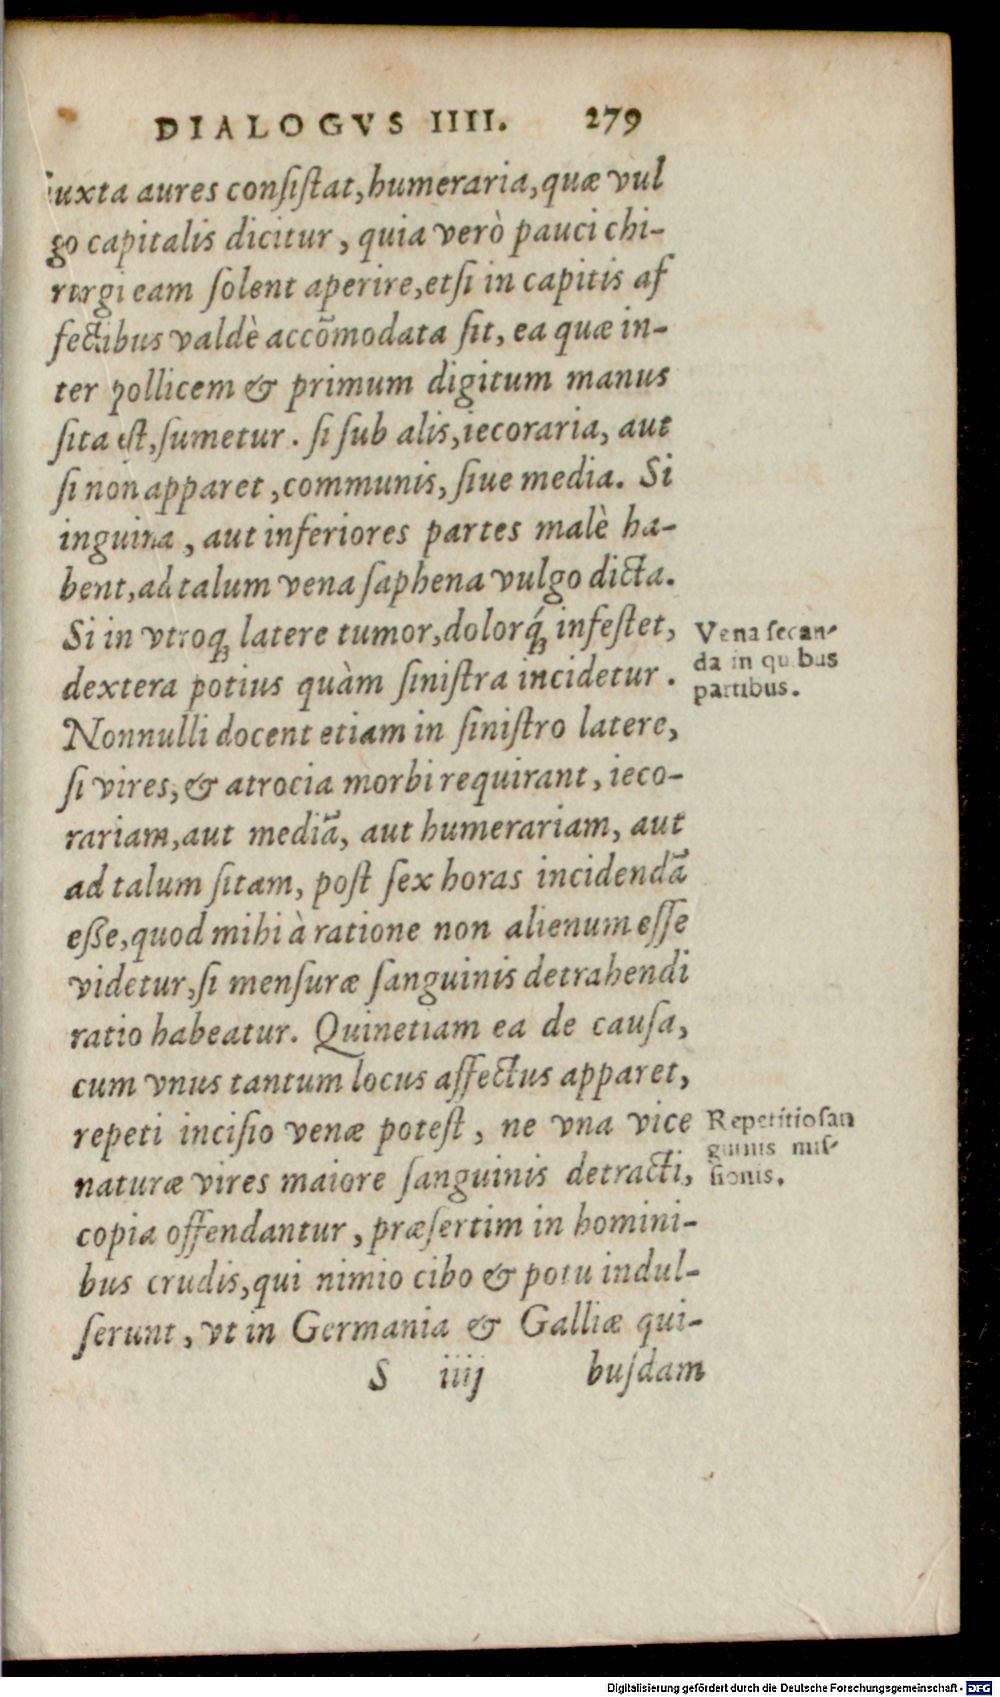 DIALOGVS IIII. 279
iuxta aures consistat, humeraria, quæ vul
go capitalis dicitur, quia verò pauci chi-
rurgi eam solent aperire, etsi in capitis af
fectibus valdè accõmodata sit, ea quæ in-
ter pollicem & primum digitum manus
sita est, sumetur. si sub alis, iecoraria, aut
si non apparet, communis, siue media. Si
inguina, aut inferiores partes malè ha-
bent, ad talum vena saphena vulgo dicta.
Si in vtroq́; latere tumor, dolorq́; infestet,
dextera potius quàm sinistra incidetur.
Vena secan-
da in quibus
partibus.
Nonnulli docent etiam in sinistro latere,
si vires, & atrocia morbi requirant, ieco-
rariam, aut mediã, aut humerariam, aut
ad talum sitam, post sex horas incidendã
esse, quod mihi à ratione non alienum esse
videtur, si mensuræ sanguinis detrahendi
ratio habeatur. Quinetiam ea de causa,
cum vnus tantum locus affectus apparet,
repeti incisio venæ potest, ne vna vice
naturæ vires maiore sanguinis detracti,
Repetitio san
guinis mis-
sionis.
copia offendantur, præsertim in homini-
bus crudis, qui nimio cibo & potu indul-
serunt, vt in Germania & Galliæ qui-
S iiij busdam
Digitalisierung gefördert durch die Deutsche Forschungsgemeinschaft - DFG